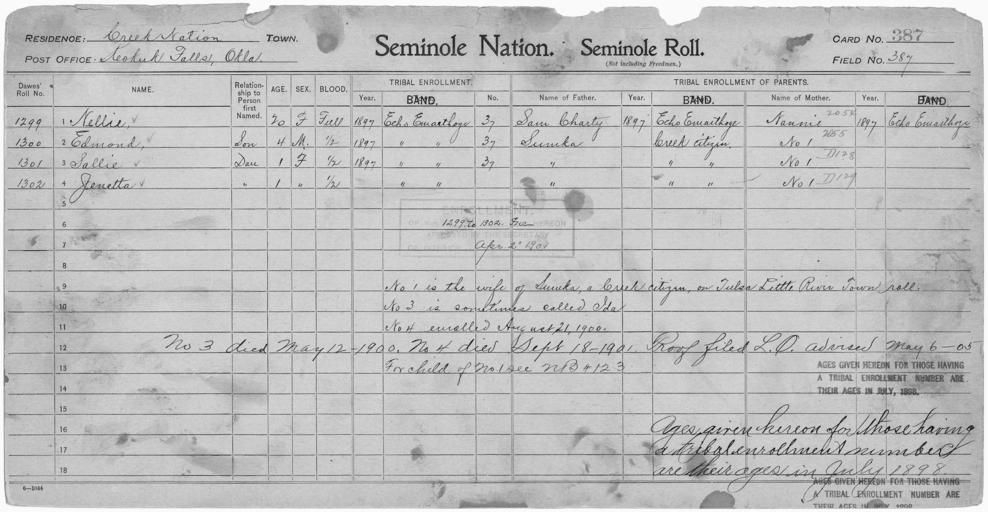 RESIDENCE: Creek Nation TOWN. Seminole Nation. Seminole Roll. CARD NO. 387
POST OFFICE: Keokuk Falls, Okla. (Not including Freedmen.) FIELD NO. 387
Dawes' Roll No. NAME. Relationship to Person first Named. AGE. SEX. BLOOD. TRIBAL ENROLLMENT. TRIBAL ENROLLMENT OF PARENTS.
Year. BAND. No. Name of Father. Year. BAND. Name of Mother. Year. BAND.
1299 1 Nellie, 20 F Full 1897 Echo Emarthoge 37 Sam Charty 1897 Echo Emarthoge Nannie 1897 Echo Emarthoge
1300 2 Edmond, Son 4 M. 1/2 1897 " " 37 Sumka Creek citizen, No 1
1301 3 Sallie Dau 1 F 1/2 1897 " " 37 " " " No 1 D128
1302 4 Jenetta " 1 " 1/2 " " " " " No 1 D129
5
ENROLLMENT.
6 1299 to 1302. Inc
7 Apr 2" 1901
8
9 No 1 is the wife of Sumka, a Creek citizen, on Tulsa Little River Town roll.
10 No 3 is sometimes called Ida
11 No 4 enrolled August 21, 1900.
12 No 3 died May 12-1900. No 4 died Sept 18-1901. Proof filed L.O. advised May 6-05
13 For child of No 1 see NB #123
AGES GIVEN HEREON FOR THOSE HAVING
14 A TRIBAL ENROLLMENT NUMBER ARE
THEIR AGES IN JULY, 1898.
15
16 Ages given hereon for those having
17 a tribal enrollment number
18 are their ages in July 1898
6-1044 AGES GIVEN HEREON FOR THOSE HAVING
A TRIBAL ENROLLMENT NUMBER ARE
THEIR AGES IN JULY, 1898